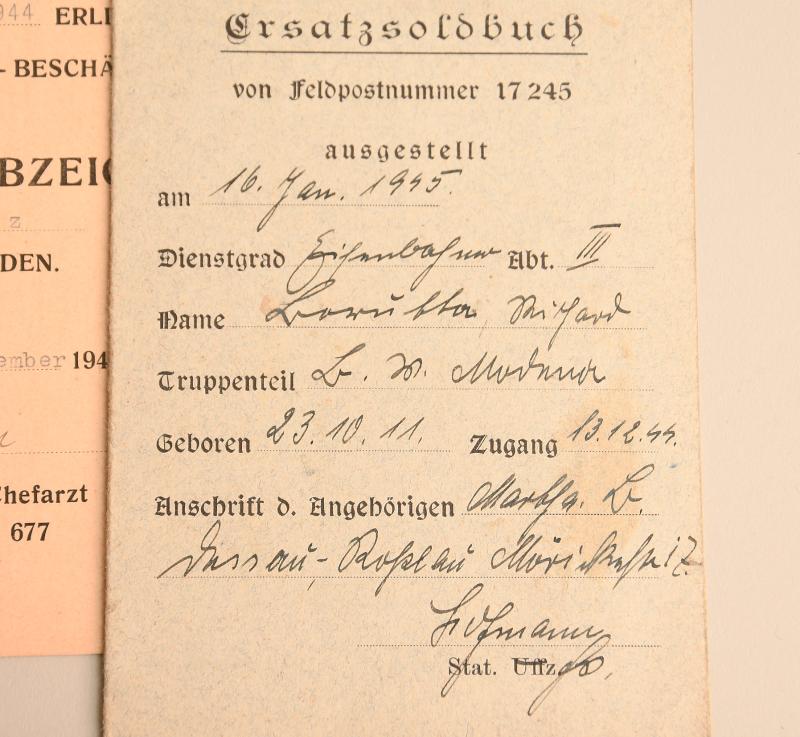 944 ERL
- BESCHÄ
BZEIC
z
DEN.
ember 194
Chefarzt
677
Ersatzsoldbuch
von Feldpostnummer 17245
ausgestellt
am 16. Jan. 1945.
Dienstgrad Eisenbahner Abt. III
Name Borutta, Richard
Truppenteil B. W. Modena
Geboren 23.10.11. Zugang 13.12.44.
Anschrift d. Angehörigen Martha. B.
Dessau-, Roßlau Mörikestr 17.
Hofmann
Stat. Uffz.